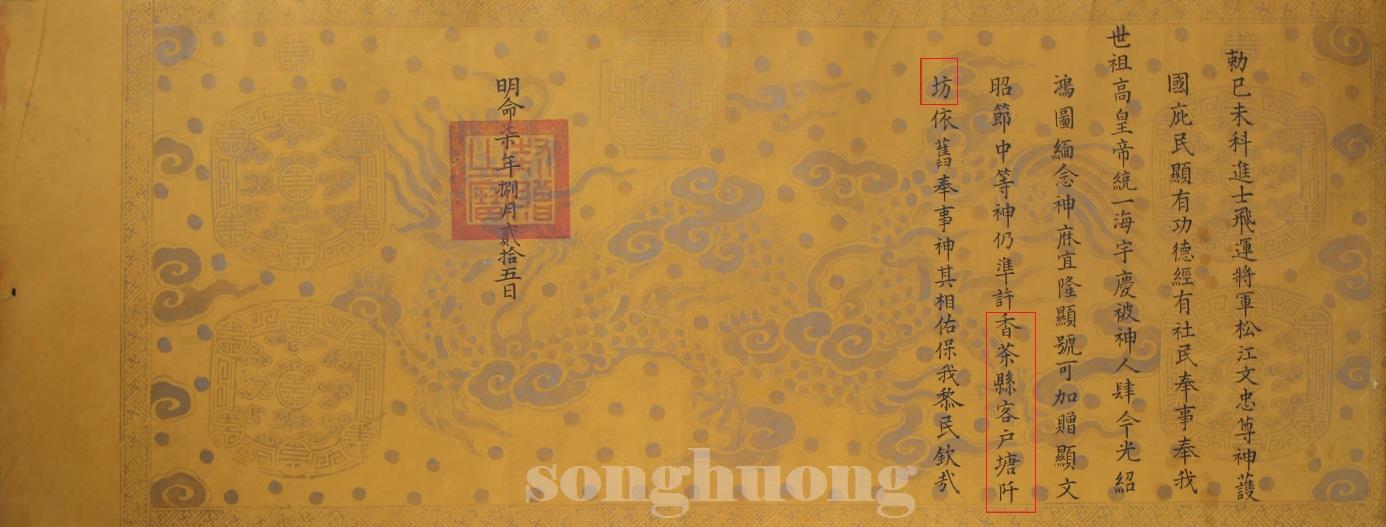 勅己未科進士飛運將軍松江文忠尊神護
國庇民顯有功德經有社民奉事奉我
世祖高皇帝統一海宇慶被神人肆今光紹
鴻圖緬念神庥宜隆顯號可加贈顯文
昭節中等神仍準許香茶縣客户塘阡
坊依舊奉事神其相佑保我黎民欽哉
明命柒年捌月貳拾五日
敕贈之寶
songhuong